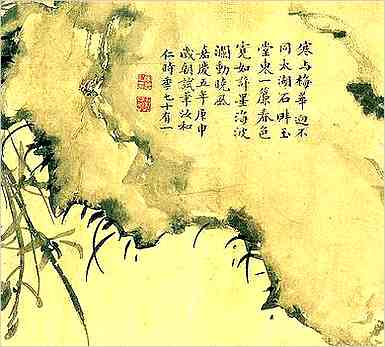 寒与梅華迥不
同太湖石畔玉
堂東一簾春色
寛如許墨海波
瀾動曉風
嘉慶五年庚申
歳朝試筆汝和
仁時季七十有一